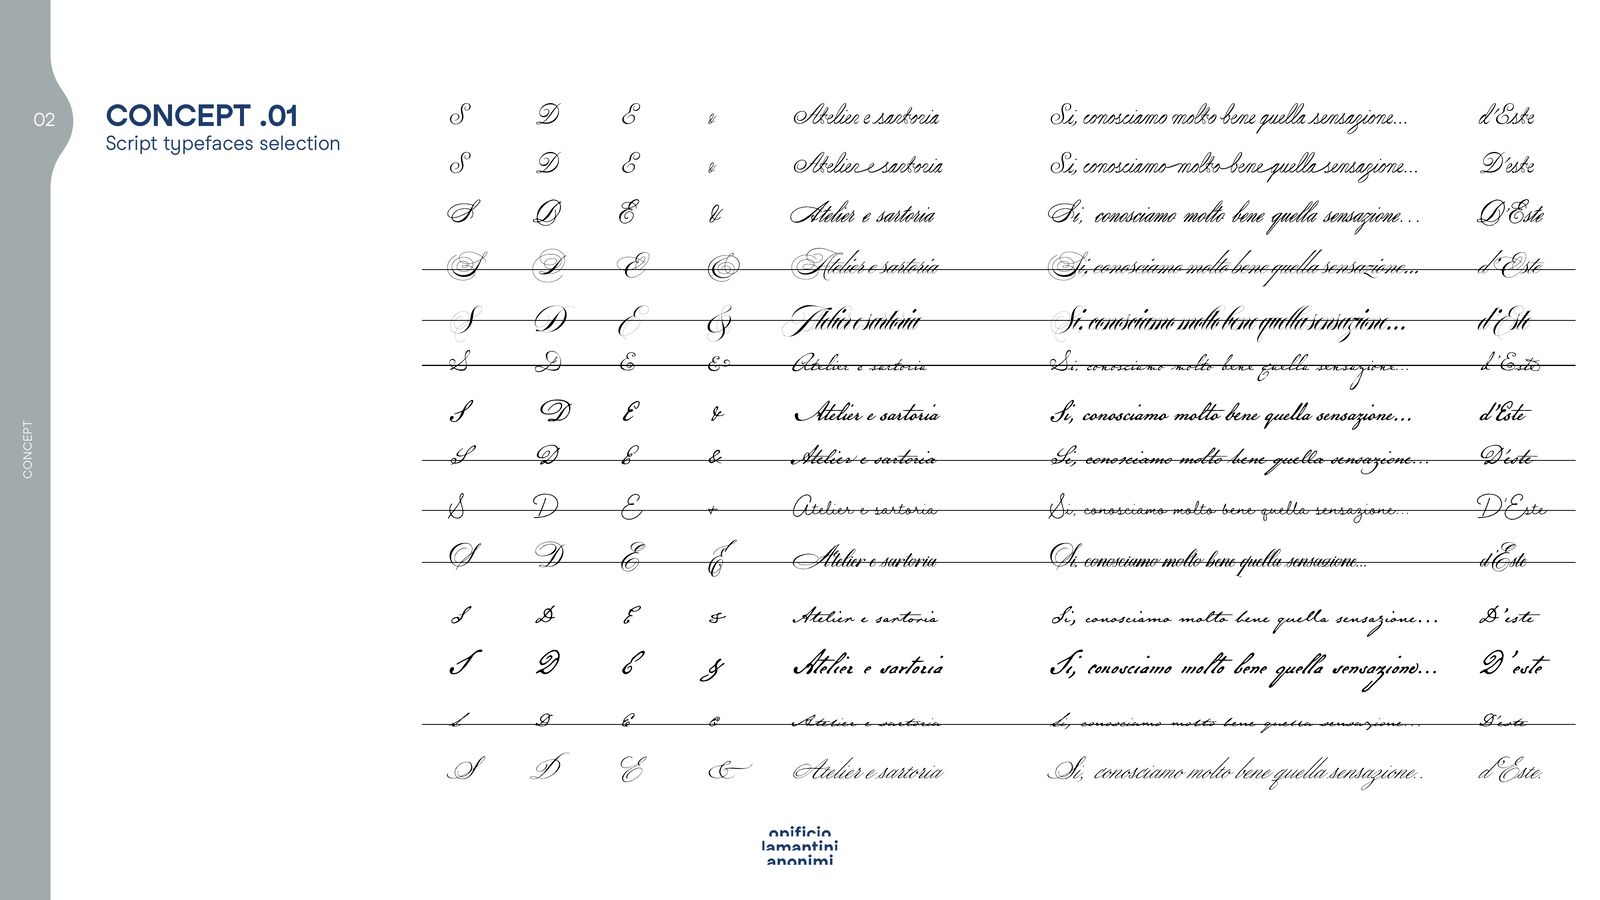 02
CONCEPT .01
Script typefaces selection
CONCEPT
S D E & Atelier e sartoria Si, conosciamo molto bene quella sensazione... d'Este
S D E & Atelier e sartoria Si, conosciamo molto bene quella sensazione... D'este
S D E & Atelier e sartoria Si, conosciamo molto bene quella sensazione... D'Este
S D E & Atelier e sartoria Si, conosciamo molto bene quella sensazione... d'Este
S D E & Atelier e sartoria Si, conosciamo molto bene quella sensazione... d'Este
S D E & Atelier e sartoria Si, conosciamo molto bene quella sensazione... d'Este
S D E & Atelier e sartoria Si, conosciamo molto bene quella sensazione... d'Este
S D E & Atelier e sartoria Si, conosciamo molto bene quella sensazione... D'este
S D E + Atelier e sartoria Si, conosciamo molto bene quella sensazione... D'Este
S D E & Atelier e sartoria Si, conosciamo molto bene quella sensazione... d'Este
S D E & Atelier e sartoria Si, conosciamo molto bene quella sensazione... D'este
S D E & Atelier e sartoria Si, conosciamo molto bene quella sensazione... D'este
S D E & Atelier e sartoria Si, conosciamo molto bene quella sensazione... D'este
S D E & Atelier e sartoria Si, conosciamo molto bene quella sensazione.. d'Este.
opificio
lamantini
anonimi